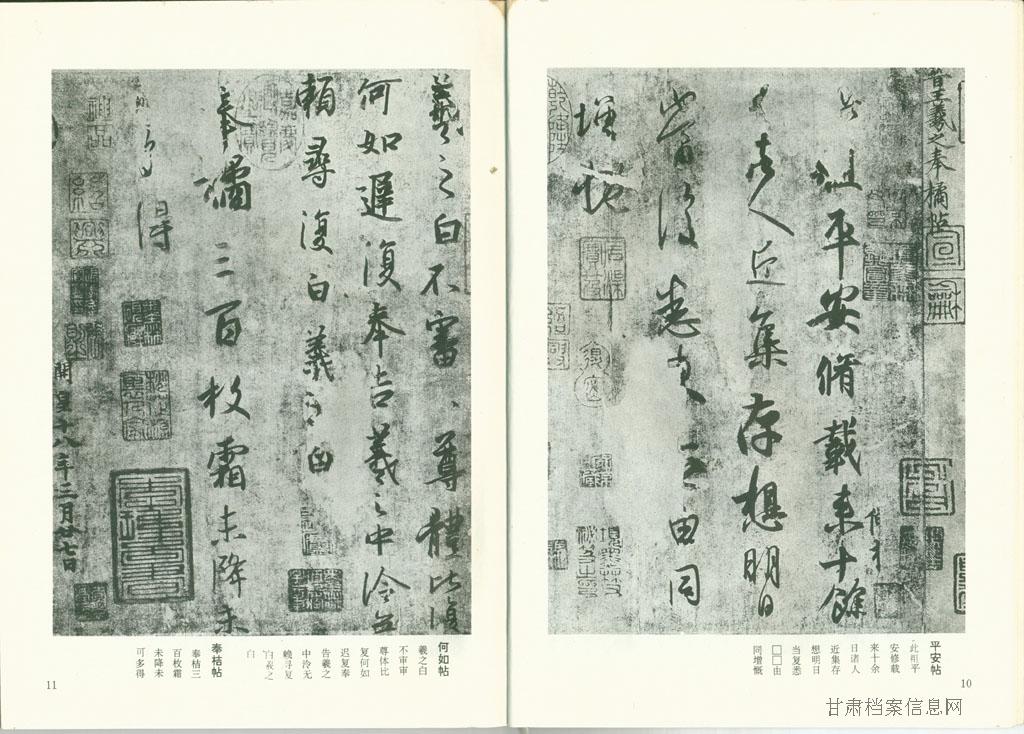 晉王羲之奉橘帖
此粗平安脩載來十餘
日諸人近集存想明日
當復悉來無由同
增慨
平安帖
此粗平
安修载
来十余
日诸人
近集存
想明日
当复悉
□□由
同增慨
10
羲之白不審尊體比復
何如遲復奉告羲之中冷無
賴尋復白羲之白
奉橘三百枚霜未降未
可多得
開皇十八年三月廿七日
何如帖
羲之白
不审审
尊体比
复何如
迟复奉
告羲之
中冷无
寻复
白羲之
白
奉桔帖
奉桔三
百枚霜
未降未
可多得
11
甘肃档案信息网